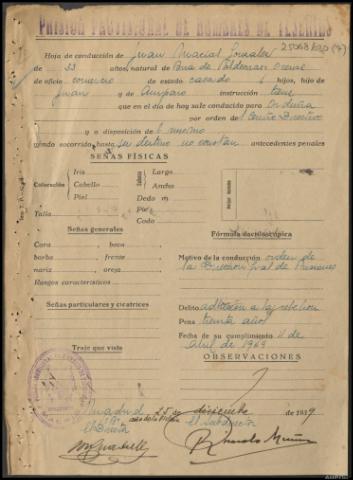 PRISION PROVISIONAL DE HOMBRES DE
Hoja de conducción de Juan Macial González
de 33 años, natural de Orense
de oficio comercio de estado casado 6 hijos, hijo de
Juan y de Amparo instrucción tiene
que en el día de hoy sale conducido para Orduña
por orden de
y a disposición de el mismo
yendo socorrido hasta su destino no constan antecedentes penales
SEÑAS FÍSICAS
Coloración
Iris
Cabello
Piel
Largo
Ancho
Dedo m
Pie
Codo
Talla
Señas generales
Cara boca
barba frente
nariz oreja
Rasgos característicos
Señas particulares y cicatrices
Traje que viste
Fórmula dactiloscópica
Motivo de la conducción orden de
la Dirección Gral de Prisiones
Delito adhesión a la rebelión
Pena treinta años
Fecha de su cumplimiento
abril de 1969
OBSERVACIONES
Madrid 25 de diciembre de 1939
Año de la Victoria
El Director
El Subdirector